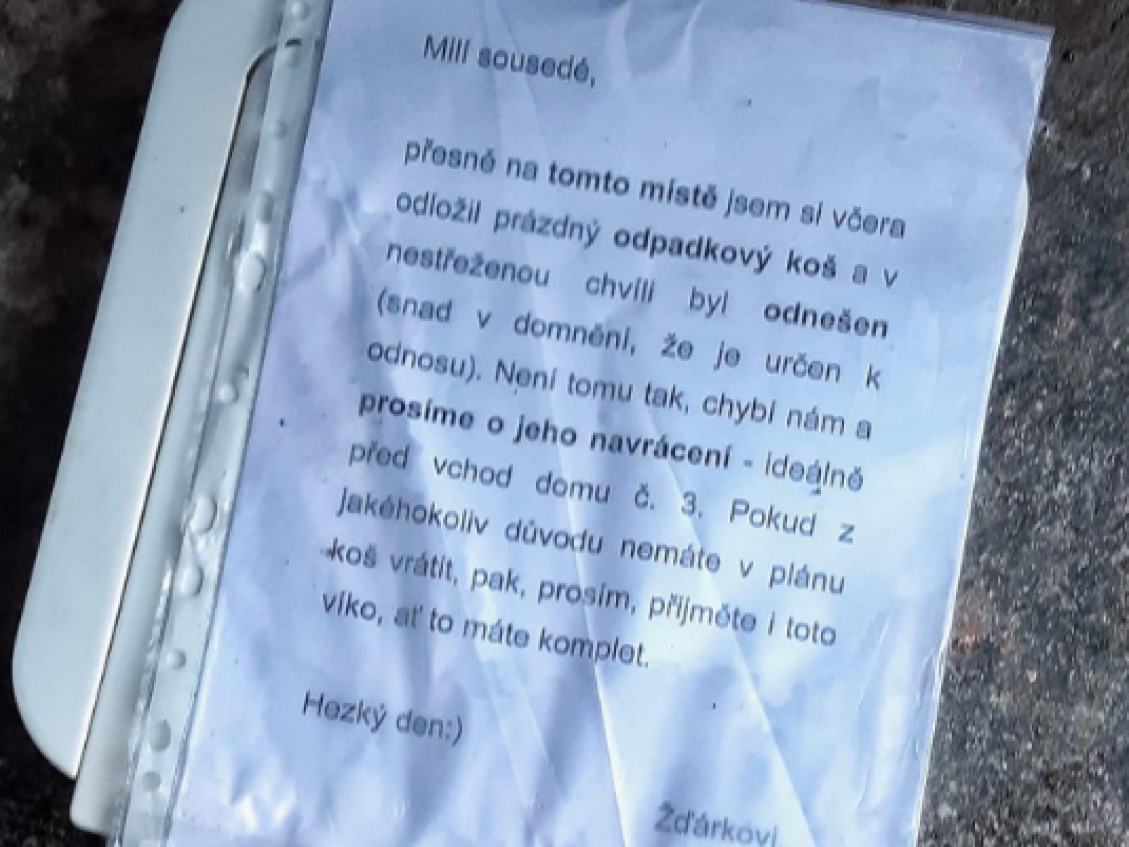 Milí sousedé,
přesně na tomto místě jsem si včera
odložil prázdný odpadkový koš a v
nestřeženou chvíli byl odnešen
(snad v domnění, že je určen k
odnosu). Není tomu tak, chybí nám a
prosíme o jeho navrácení - ideálně
před vchod domu č. 3. Pokud z
jakéhokoliv důvodu nemáte v plánu
koš vrátit, pak, prosím, přijměte i toto
víko, ať to máte komplet.
Hezký den:)
Žďárkovi